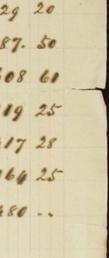 29 20
87. 50
608 61
119 25
417 28
164 25
480 ..